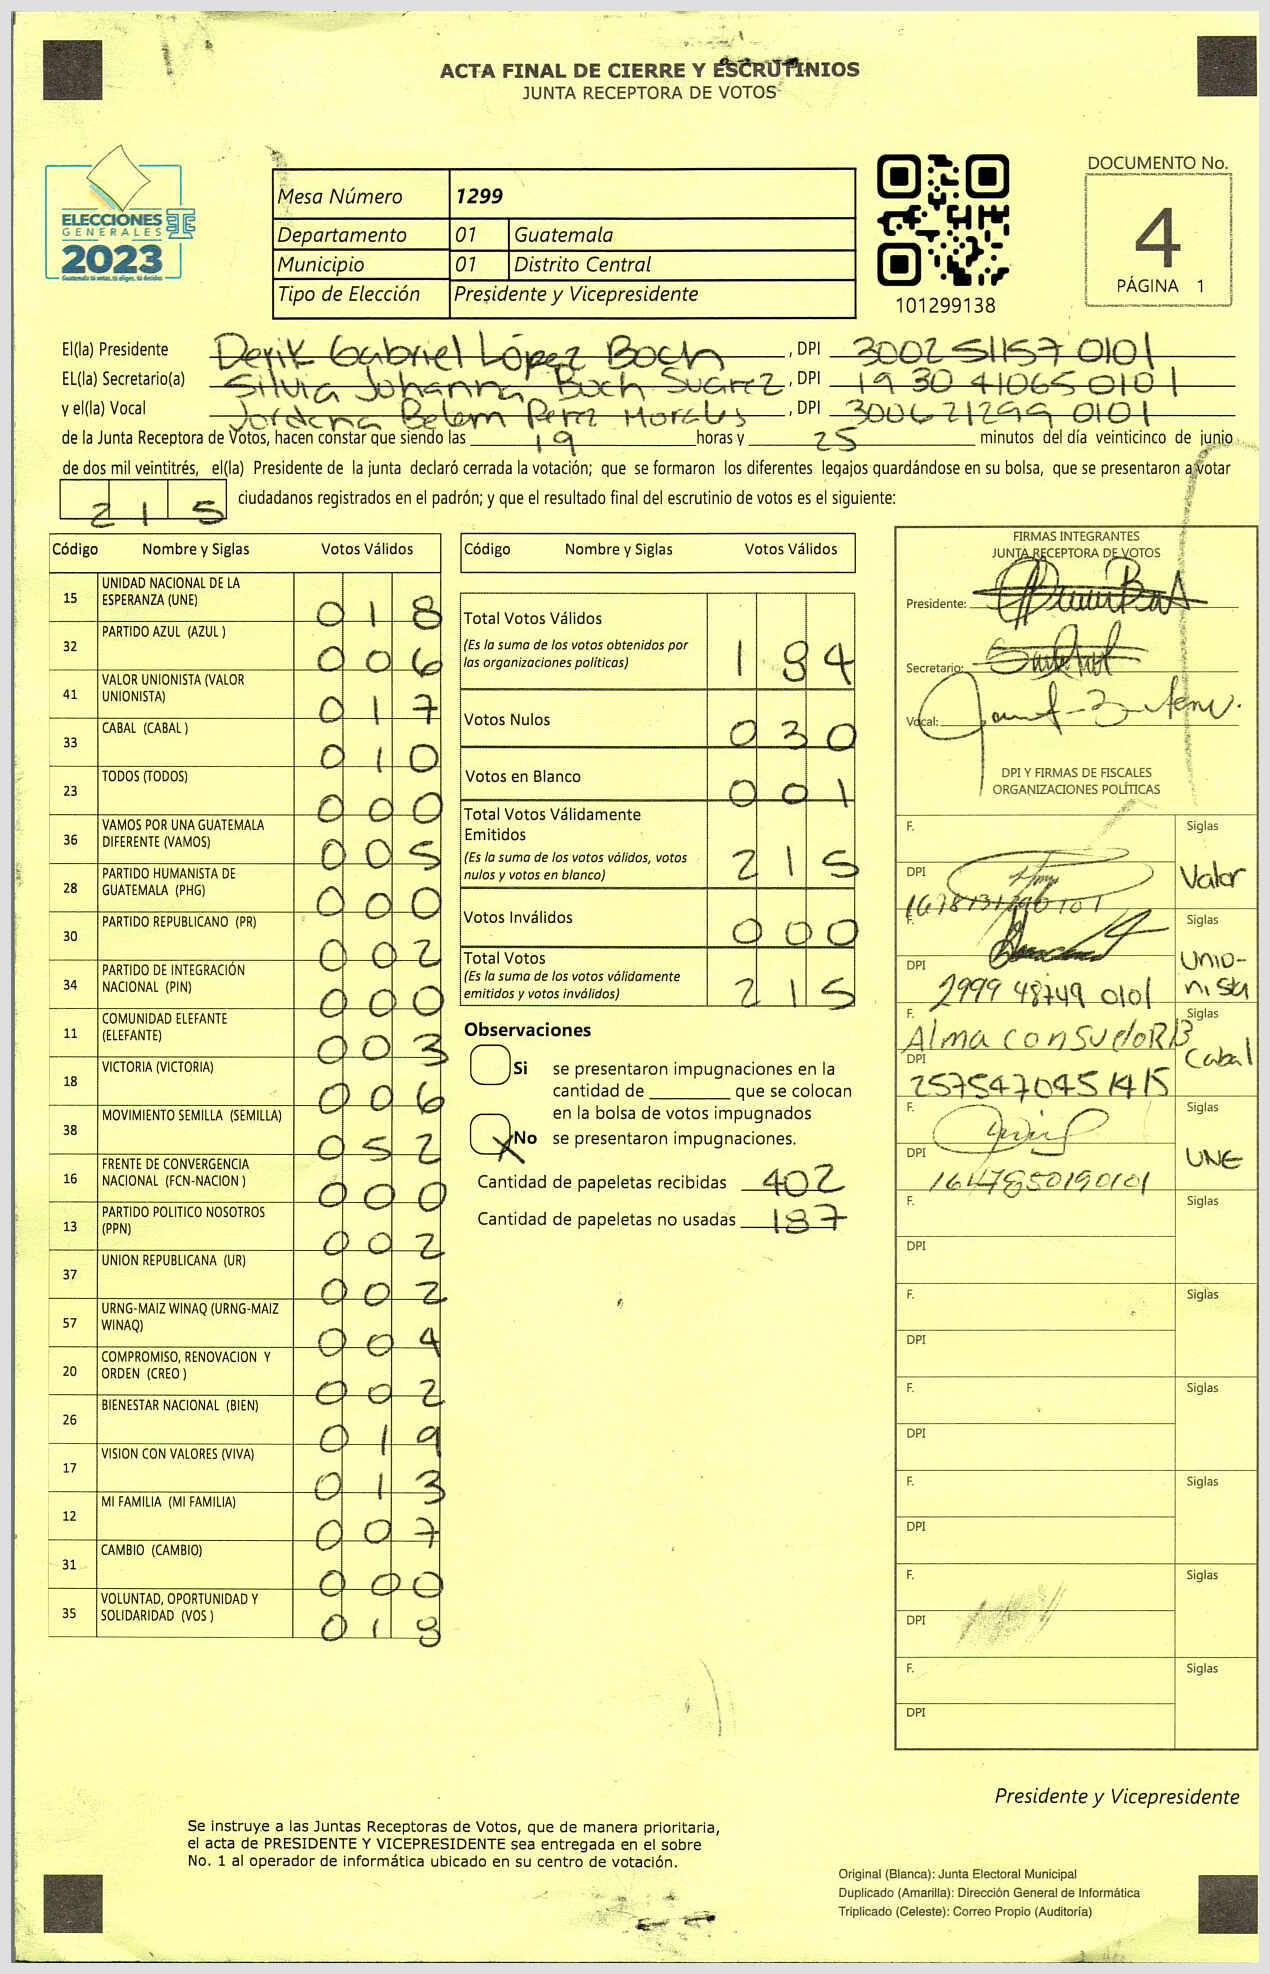 ACTA FINAL DE CIERRE Y ESCRUTINIOS
JUNTA RECEPTORA DE VOTOS
ELECCIONES
GENERALES
2023
Guatemala tú votas, tú eliges, tú decides
Mesa Número 1299
Departamento 01 Guatemala
Municipio 01 Distrito Central
Tipo de Elección Presidente y Vicepresidente
101299138
DOCUMENTO No.
4
PÁGINA 1
El(la) Presidente Derik Gabriel López Boch, DPI 3002 51157 0101
EL(la) Secretario(a) Silvia Johanna Boch Suarez, DPI 19 30 41065 0101
y el(la) Vocal Jordana Belem Perez Morales, DPI 300621299 0101
de la Junta Receptora de Votos, hacen constar que siendo las 19 horas y 25 minutos del día veinticinco de junio
de dos mil veintitrés, el(la) Presidente de la junta declaró cerrada la votación; que se formaron los diferentes legajos guardándose en su bolsa, que se presentaron a votar
215 ciudadanos registrados en el padrón; y que el resultado final del escrutinio de votos es el siguiente:
Código Nombre y Siglas Votos Válidos
15 UNIDAD NACIONAL DE LA
ESPERANZA (UNE) 018
32 PARTIDO AZUL (AZUL ) 006
41 VALOR UNIONISTA (VALOR
UNIONISTA) 017
33 CABAL (CABAL ) 010
23 TODOS (TODOS) 000
36 VAMOS POR UNA GUATEMALA
DIFERENTE (VAMOS) 005
28 PARTIDO HUMANISTA DE
GUATEMALA (PHG) 000
30 PARTIDO REPUBLICANO (PR) 002
34 PARTIDO DE INTEGRACIÓN
NACIONAL (PIN) 000
11 COMUNIDAD ELEFANTE
(ELEFANTE) 003
18 VICTORIA (VICTORIA) 006
38 MOVIMIENTO SEMILLA (SEMILLA) 052
16 FRENTE DE CONVERGENCIA
NACIONAL (FCN-NACION ) 000
13 PARTIDO POLITICO NOSOTROS
(PPN) 002
37 UNION REPUBLICANA (UR) 002
57 URNG-MAIZ WINAQ (URNG-MAIZ
WINAQ) 004
20 COMPROMISO, RENOVACION Y
ORDEN (CREO ) 002
26 BIENESTAR NACIONAL (BIEN) 019
17 VISION CON VALORES (VIVA) 013
12 MI FAMILIA (MI FAMILIA) 007
31 CAMBIO (CAMBIO) 000
35 VOLUNTAD, OPORTUNIDAD Y
SOLIDARIDAD (VOS ) 018
Código Nombre y Siglas Votos Válidos
Total Votos Válidos
(Es la suma de los votos obtenidos por
las organizaciones políticas) 184
Votos Nulos 030
Votos en Blanco 001
Total Votos Válidamente
Emitidos
(Es la suma de los votos válidos, votos
nulos y votos en blanco) 215
Votos Inválidos 000
Total Votos
(Es la suma de los votos válidamente
emitidos y votos inválidos) 215
Observaciones
Si se presentaron impugnaciones en la
cantidad de ________ que se colocan
en la bolsa de votos impugnados
X No se presentaron impugnaciones.
Cantidad de papeletas recibidas 402
Cantidad de papeletas no usadas 187
FIRMAS INTEGRANTES
JUNTA RECEPTORA DE VOTOS
Presidente:
Secretario:
Vocal:
DPI Y FIRMAS DE FISCALES
ORGANIZACIONES POLÍTICAS
F. Siglas
DPI Valor
F. Siglas
DPI Unio-
2999 48749 0101 nista
F. Siglas
Alma
DPI Cabal
2575470451415
F. Siglas
DPI UNE
1647850190101
F. Siglas
DPI
F. Siglas
DPI
F. Siglas
DPI
F. Siglas
DPI
F. Siglas
DPI
F. Siglas
DPI
Presidente y Vicepresidente
Se instruye a las Juntas Receptoras de Votos, que de manera prioritaria,
el acta de PRESIDENTE Y VICEPRESIDENTE sea entregada en el sobre
No. 1 al operador de informática ubicado en su centro de votación.
Original (Blanca): Junta Electoral Municipal
Duplicado (Amarilla): Dirección General de Informática
Triplicado (Celeste): Correo Propio (Auditoría)